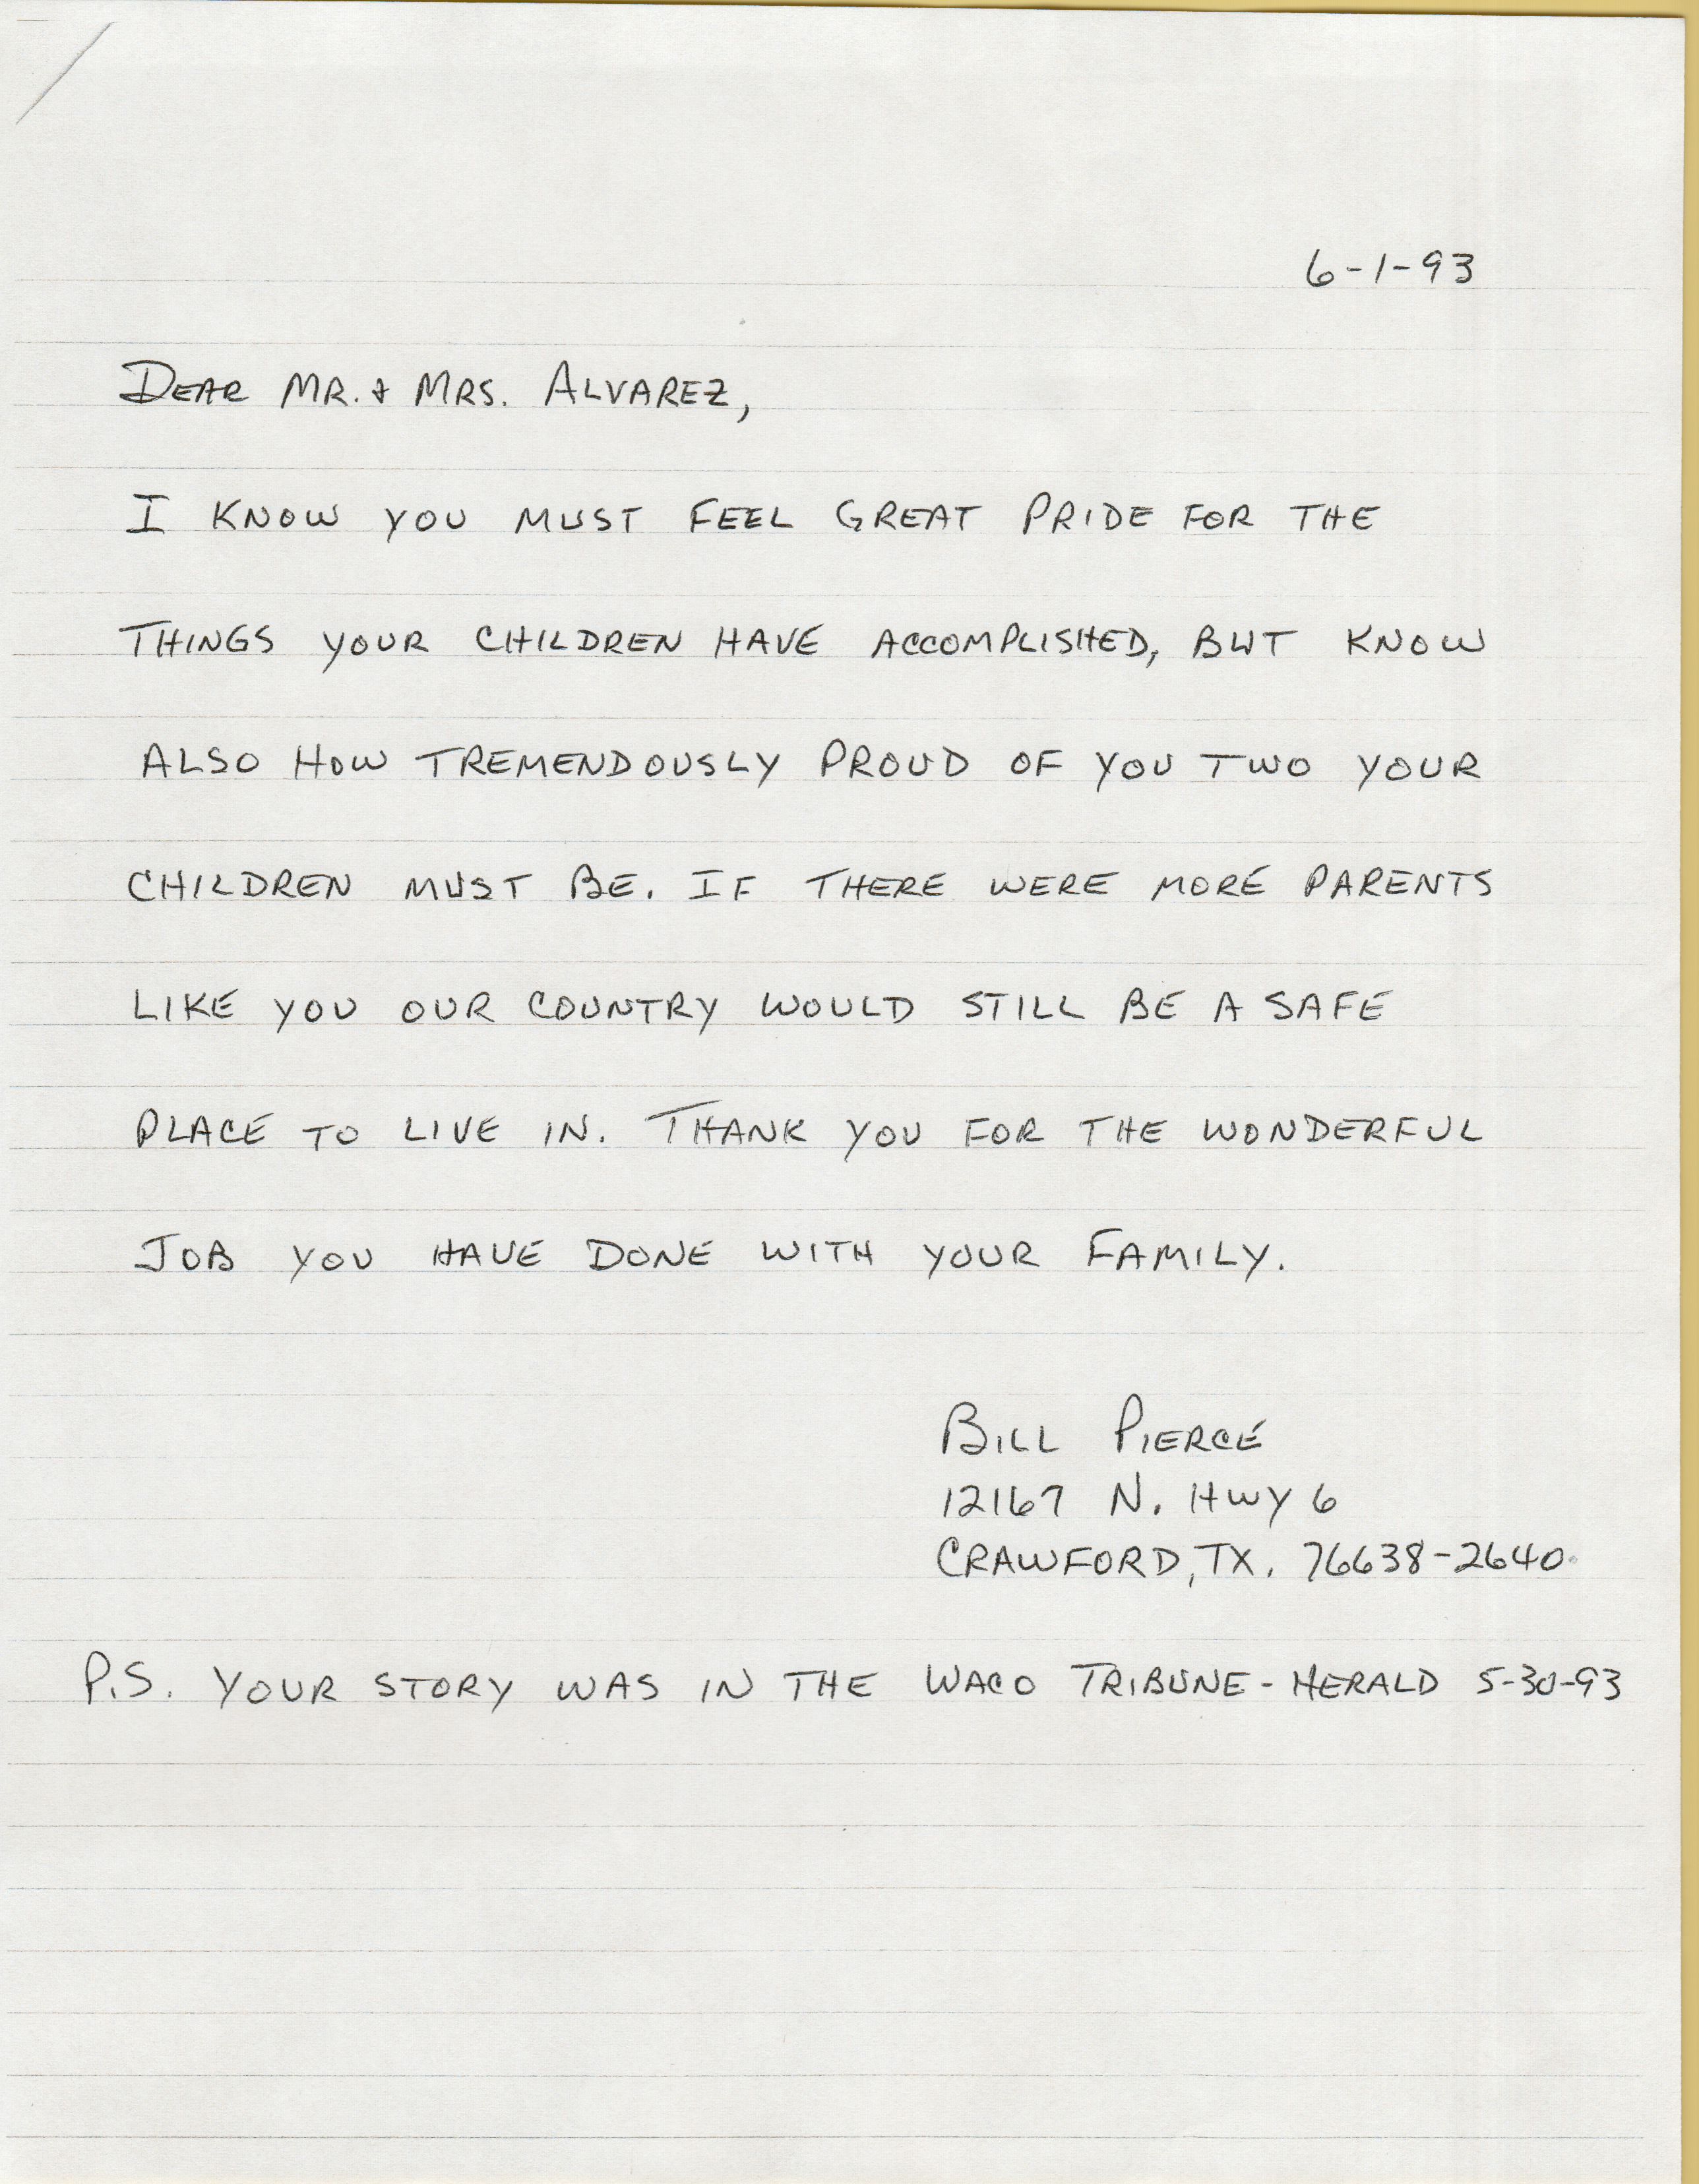 6-1-93
DEAR MR. & MRS. ALVAREZ,
I KNOW YOU MUST FEEL GREAT PRIDE FOR THE
THINGS YOUR CHILDREN HAVE ACCOMPLISHED, BUT KNOW
ALSO HOW TREMENDOUSLY PROUD OF YOU TWO YOUR
CHILDREN MUST BE. IF THERE WERE MORE PARENTS
LIKE YOU OUR COUNTRY WOULD STILL BE A SAFE
PLACE TO LIVE IN. THANK YOU FOR THE WONDERFUL
JOB YOU HAVE DONE WITH YOUR FAMILY.
BILL PIERCE
12167 N. HWY 6
CRAWFORD, TX. 76638-2640
P.S. YOUR STORY WAS IN THE WACO TRIBUNE-HERALD 5-30-93